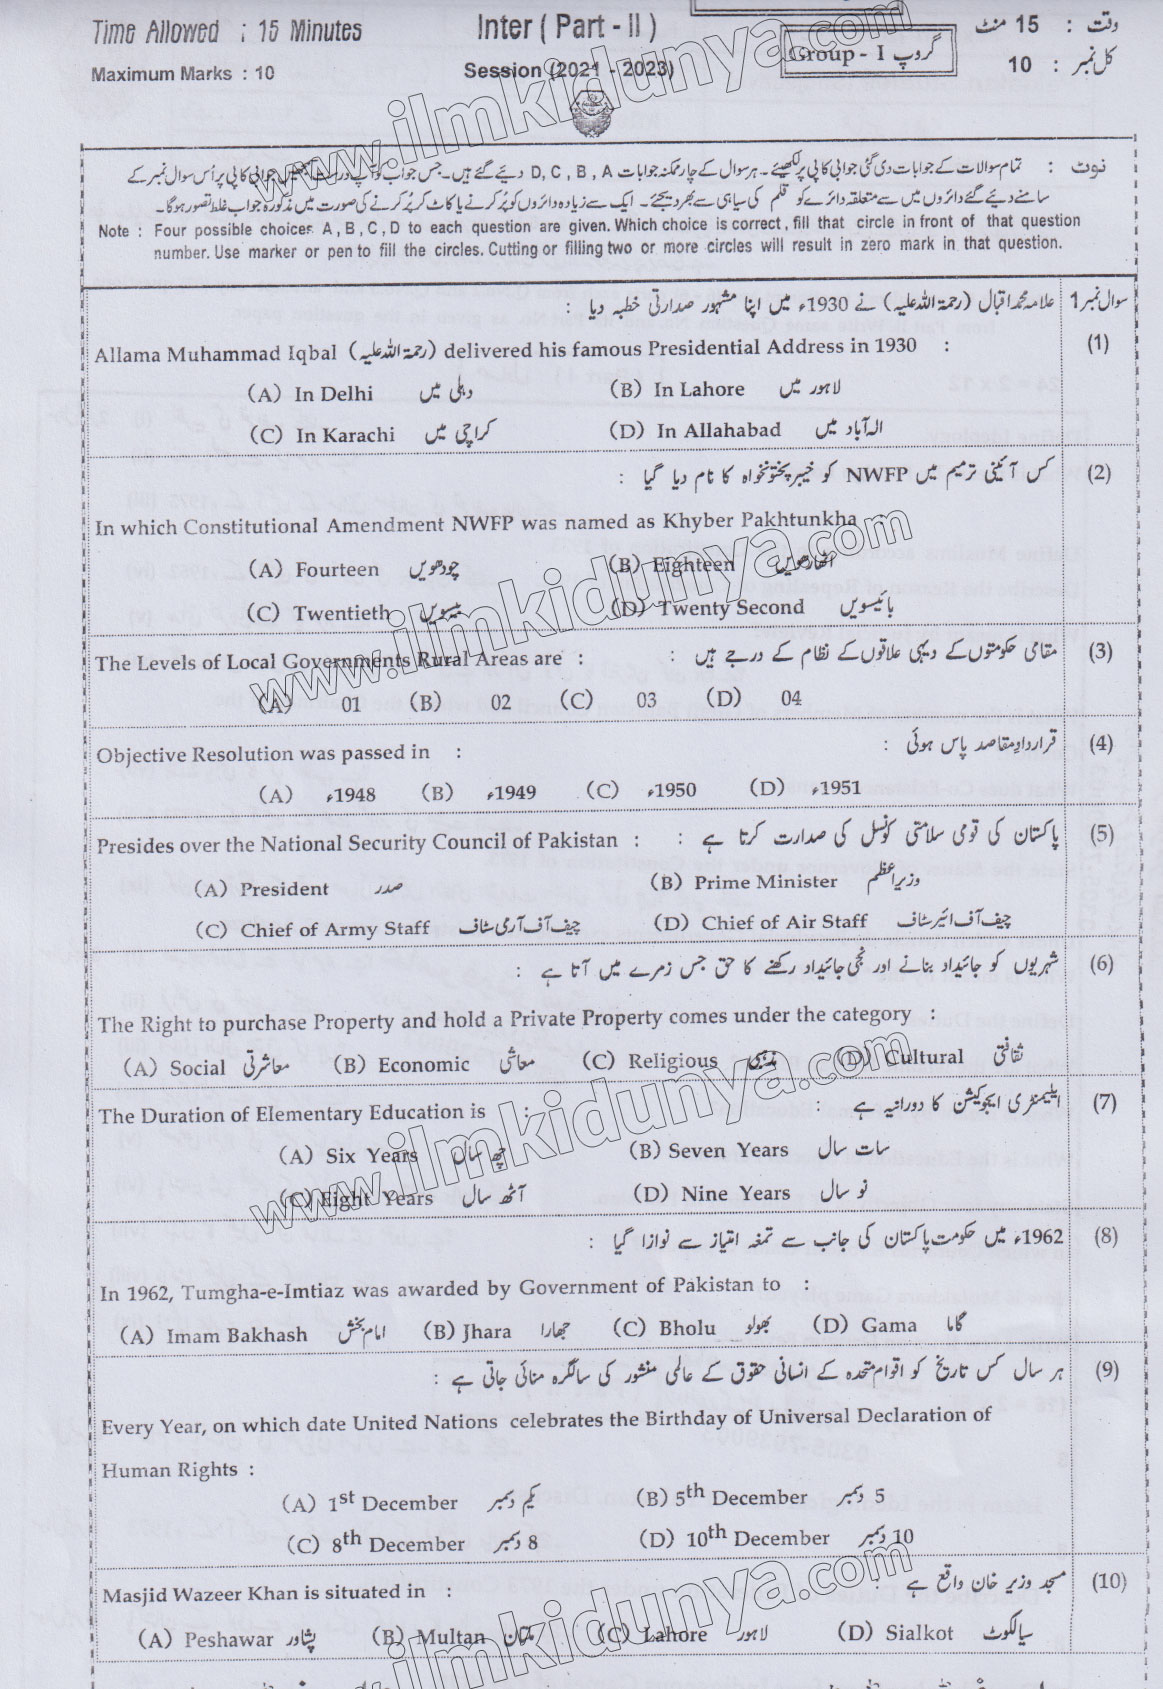 Time Allowed : 15 Minutes Inter ( Part - II ) وقت : 15 منٹ
Maximum Marks : 10 Session (2021 - 2023) Group - I گروپ کل نمبر : 10
نوٹ : تمام سوالات کے جوابات دی گئی جوابی کاپی پر لکھیئے۔ ہر سوال کے چار ممکنہ جوابات D , C , B , A دیئے گئے ہیں۔ جس جواب کو آپ درست سمجھیں جوابی کاپی پر اُس سوال نمبر کے
سامنے دیئے گئے دائروں میں سے متعلقہ دائرے کو قلم کی سیاہی سے بھر دیجئے۔ ایک سے زیادہ دائروں کو پُر کرنے یا کاٹ کر پُر کرنے کی صورت میں مذکورہ جواب غلط تصور ہوگا۔
Note : Four possible choices A , B , C , D to each question are given. Which choice is correct , fill that circle in front of that question
number. Use marker or pen to fill the circles. Cutting or filling two or more circles will result in zero mark in that question.
سوال نمبر 1 علامہ محمد اقبال (رحمۃ اللہ علیہ) نے 1930ء میں اپنا مشہور صدارتی خطبہ دیا :
Allama Muhammad Iqbal (رحمۃ اللہ علیہ) delivered his famous Presidential Address in 1930 : (1)
(A) In Delhi دہلی میں (B) In Lahore لاہور میں
(C) In Karachi کراچی میں (D) In Allahabad الہ آباد میں
کس آئینی ترمیم میں NWFP کو خیبر پختونخواہ کا نام دیا گیا : (2)
In which Constitutional Amendment NWFP was named as Khyber Pakhtunkha :
(A) Fourteen چودھویں (B) Eighteen اٹھارھویں
(C) Twentieth بیسویں (D) Twenty Second بائیسویں
The Levels of Local Governments Rural Areas are : مقامی حکومتوں کے دیہی علاقوں کے نظام کے درجے ہیں : (3)
(A) 01 (B) 02 (C) 03 (D) 04
Objective Resolution was passed in : قراردادِ مقاصد پاس ہوئی : (4)
(A) 1948ء (B) 1949ء (C) 1950ء (D) 1951ء
Presides over the National Security Council of Pakistan : پاکستان کی قومی سلامتی کونسل کی صدارت کرتا ہے : (5)
(A) President صدر (B) Prime Minister وزیراعظم
(C) Chief of Army Staff چیف آف آرمی سٹاف (D) Chief of Air Staff چیف آف ائیر سٹاف
شہریوں کو جائیداد بنانے اور نجی جائیداد رکھنے کا حق جس زمرے میں آتا ہے : (6)
The Right to purchase Property and hold a Private Property comes under the category :
(A) Social معاشرتی (B) Economic معاشی (C) Religious مذہبی (D) Cultural ثقافتی
The Duration of Elementary Education is : ایلیمنٹری ایجوکیشن کا دورانیہ ہے : (7)
(A) Six Years چھ سال (B) Seven Years سات سال
(C) Eight Years آٹھ سال (D) Nine Years نو سال
1962ء میں حکومت پاکستان کی جانب سے تمغہ امتیاز سے نوازا گیا : (8)
In 1962, Tumgha-e-Imtiaz was awarded by Government of Pakistan to :
(A) Imam Bakhash امام بخش (B) Jhara جھارا (C) Bholu بھولو (D) Gama گاما
ہر سال کس تاریخ کو اقوام متحدہ کے انسانی حقوق کے عالمی منشور کی سالگرہ منائی جاتی ہے : (9)
Every Year, on which date United Nations celebrates the Birthday of Universal Declaration of
Human Rights :
(A) 1st December یکم دسمبر (B) 5th December 5 دسمبر
(C) 8th December 8 دسمبر (D) 10th December 10 دسمبر
Masjid Wazeer Khan is situated in : مسجد وزیر خان واقع ہے : (10)
(A) Peshawar پشاور (B) Multan ملتان (C) Lahore لاہور (D) Sialkot سیالکوٹ
www.ilmkidunya.com
www.ilmkidunya.com
www.ilmkidunya.com
ilmkidunya.com